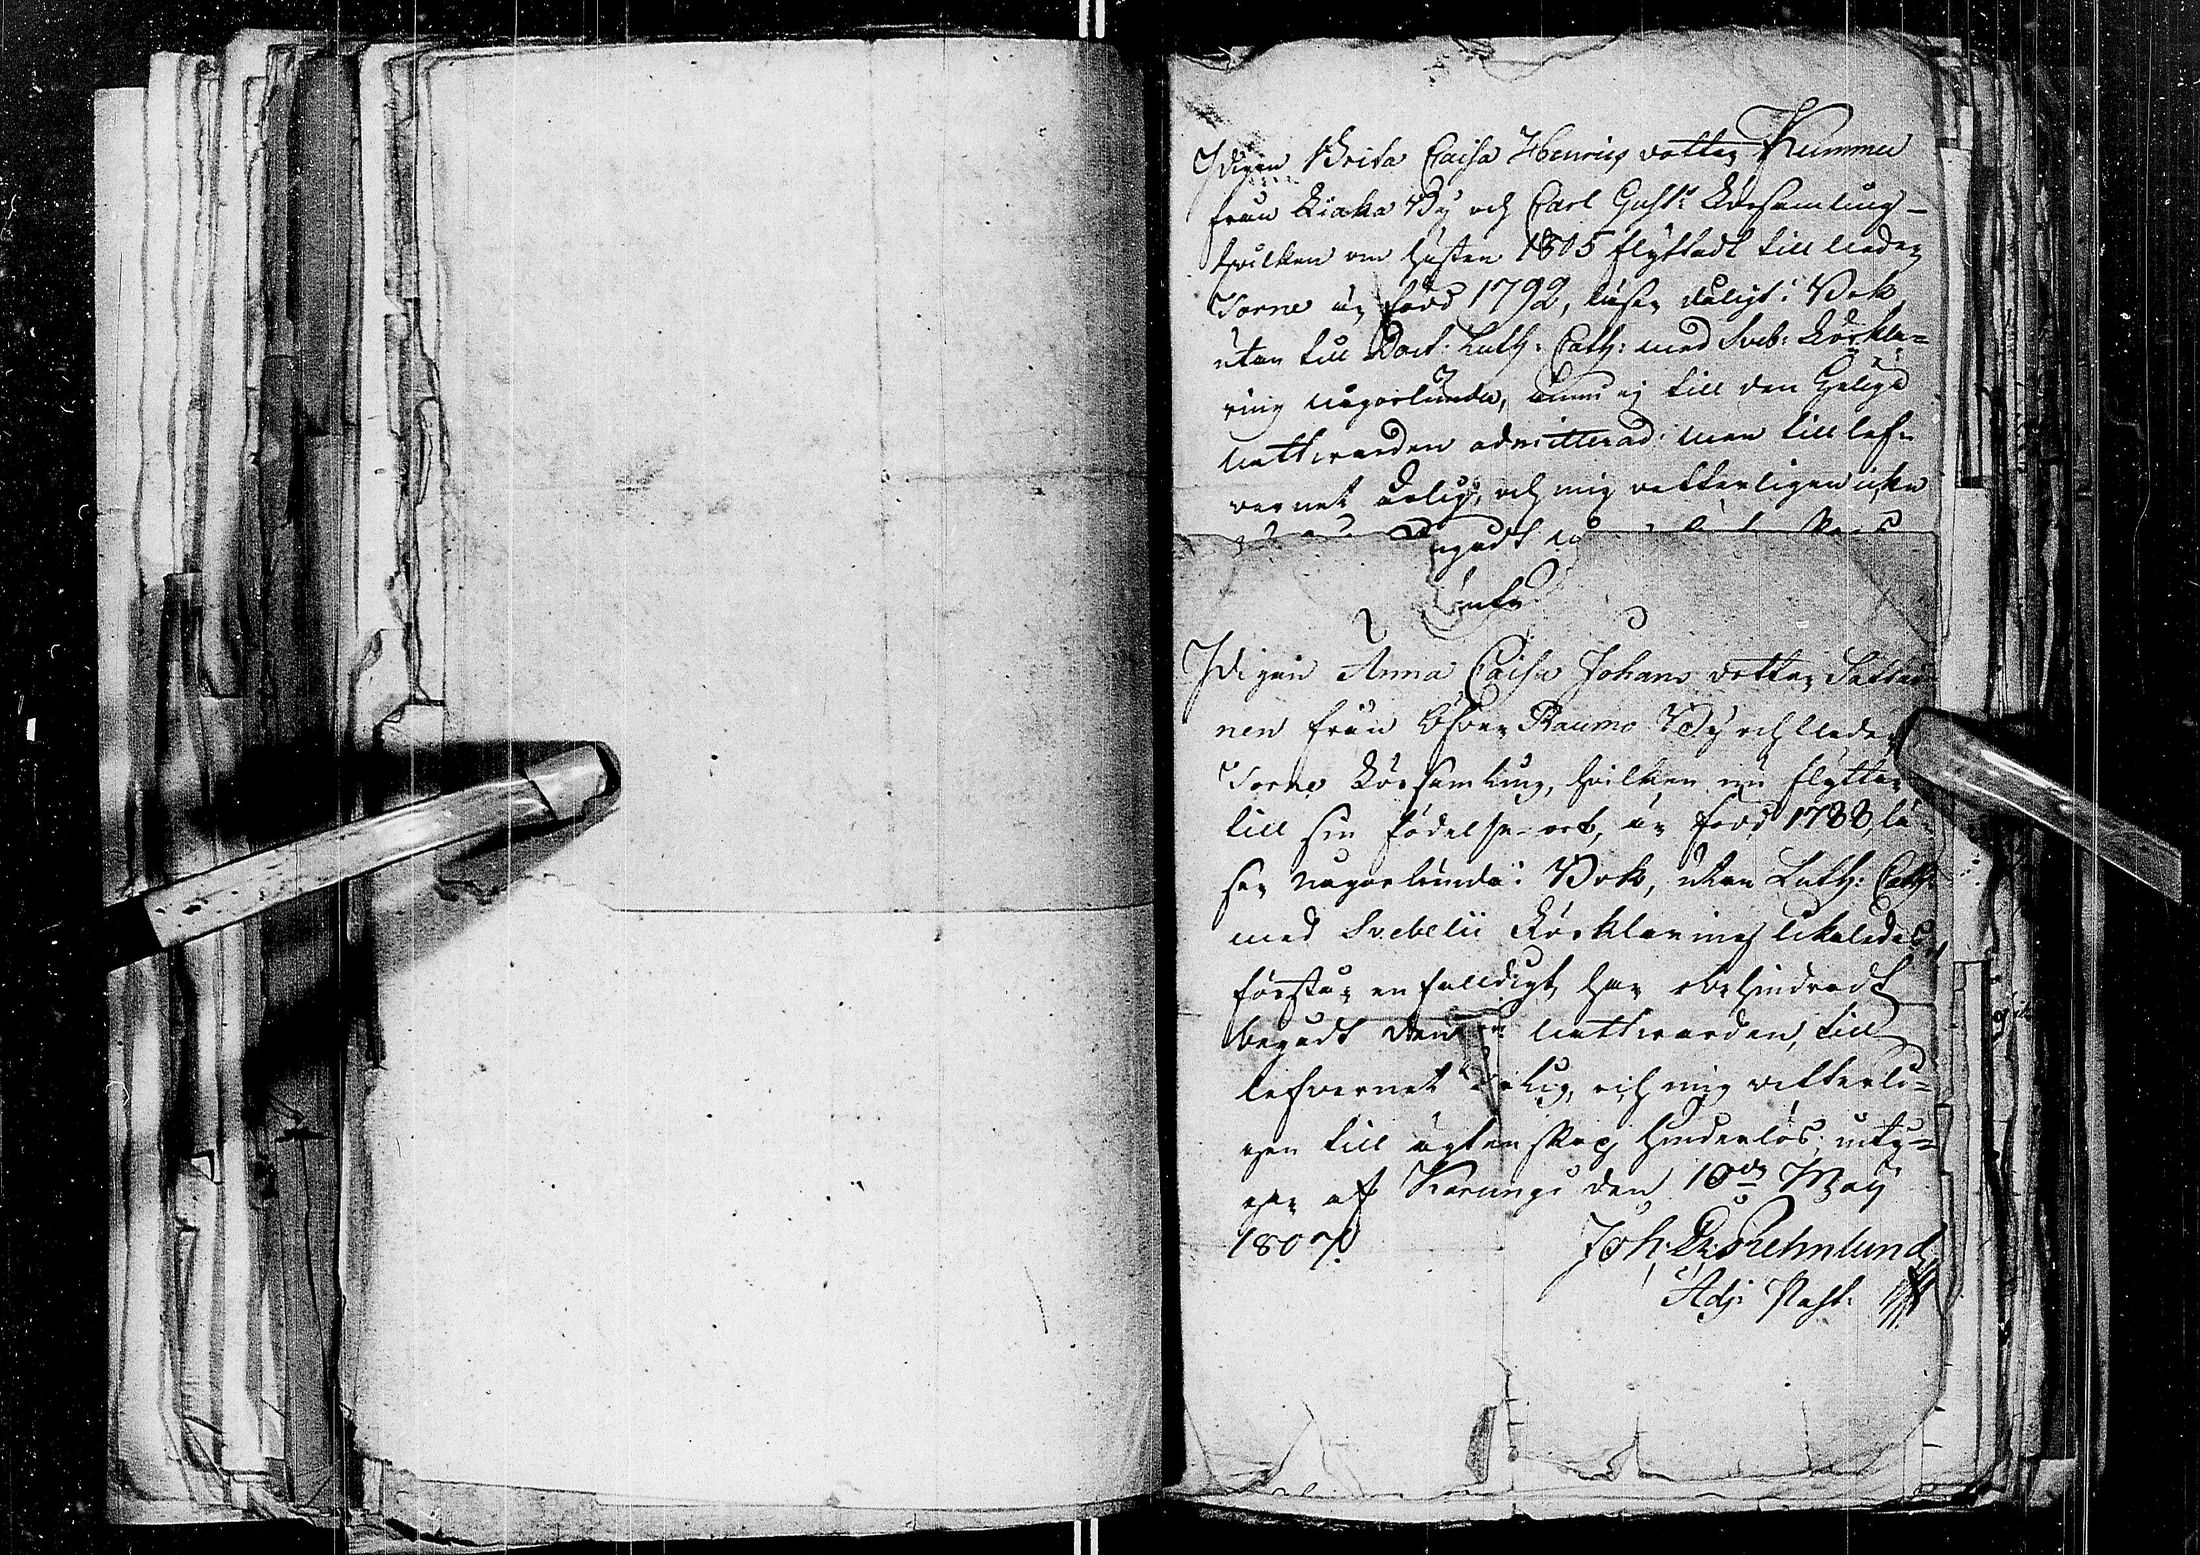 Pigan Brita Caisa Henrics dotter Kummu
från Kiaka By och Carl Gust: Församling
hvilken om hösten 1805 flyttadt till Neder
Torne är född 1792, läser daligt i Bok
utan till Doct: Luth: Cath: med Sveb: Förkla=
ring någorlunda, ännu ej till den Helige
nattvarden admitterad: men till lef-
vernet ärlig, och mig vetterligen icke
gådt
Pigan Anna Caisa Johans dotter
nen från Öfver Raumo By och Neder
Torne Församling, hvilken nu flyttar
till sin födelse-ort, är född 1788, lä-
ser någorlunda i Bok, utan Luth: Cath:
med Svebelii Förklaring likaledes,
förstår enfalldigt, har obehindradt
begådt den nattvarden, till
lefvernet ärlig, och mig vetterli=
gen till ägtenskap hinderlös; inty=
gar af Karungi den 10de Maij
1807.
Joh:
Adj: Past: